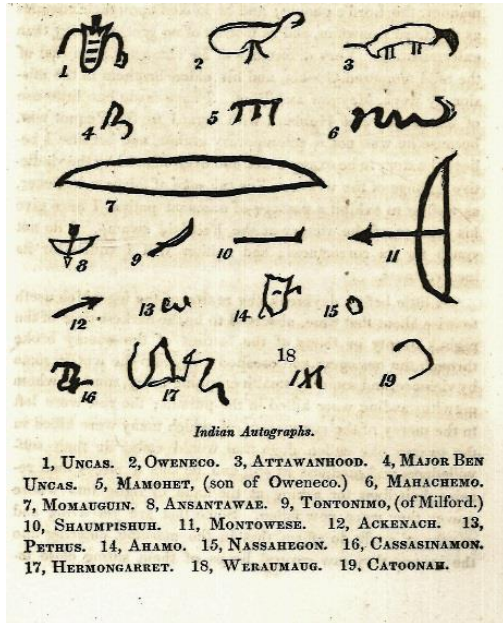 1
2
3
4
5
6
7
8
9
10
11
12
13
14
15
16
17
18
19
Indian Autographs.
1, UNCAS. 2, OWENECO. 3, ATTAWANHOOD. 4, MAJOR BEN
UNCAS. 5, MAMOHET, (son of Oweneco.) 6, MAHACHEMO.
7, MOMAUGUIN. 8, ANSANTAWAE. 9, TONTONIMO, (of Milford.)
10, SHAUMPISHUH. 11, MONTOWESE. 12, ACKENACH. 13,
PETHUS. 14, AHAMO. 15, NASSAHEGON. 16, CASSASINAMON.
17, HERMONGARRET. 18, WERAUMAUG. 19, CATOONAH.